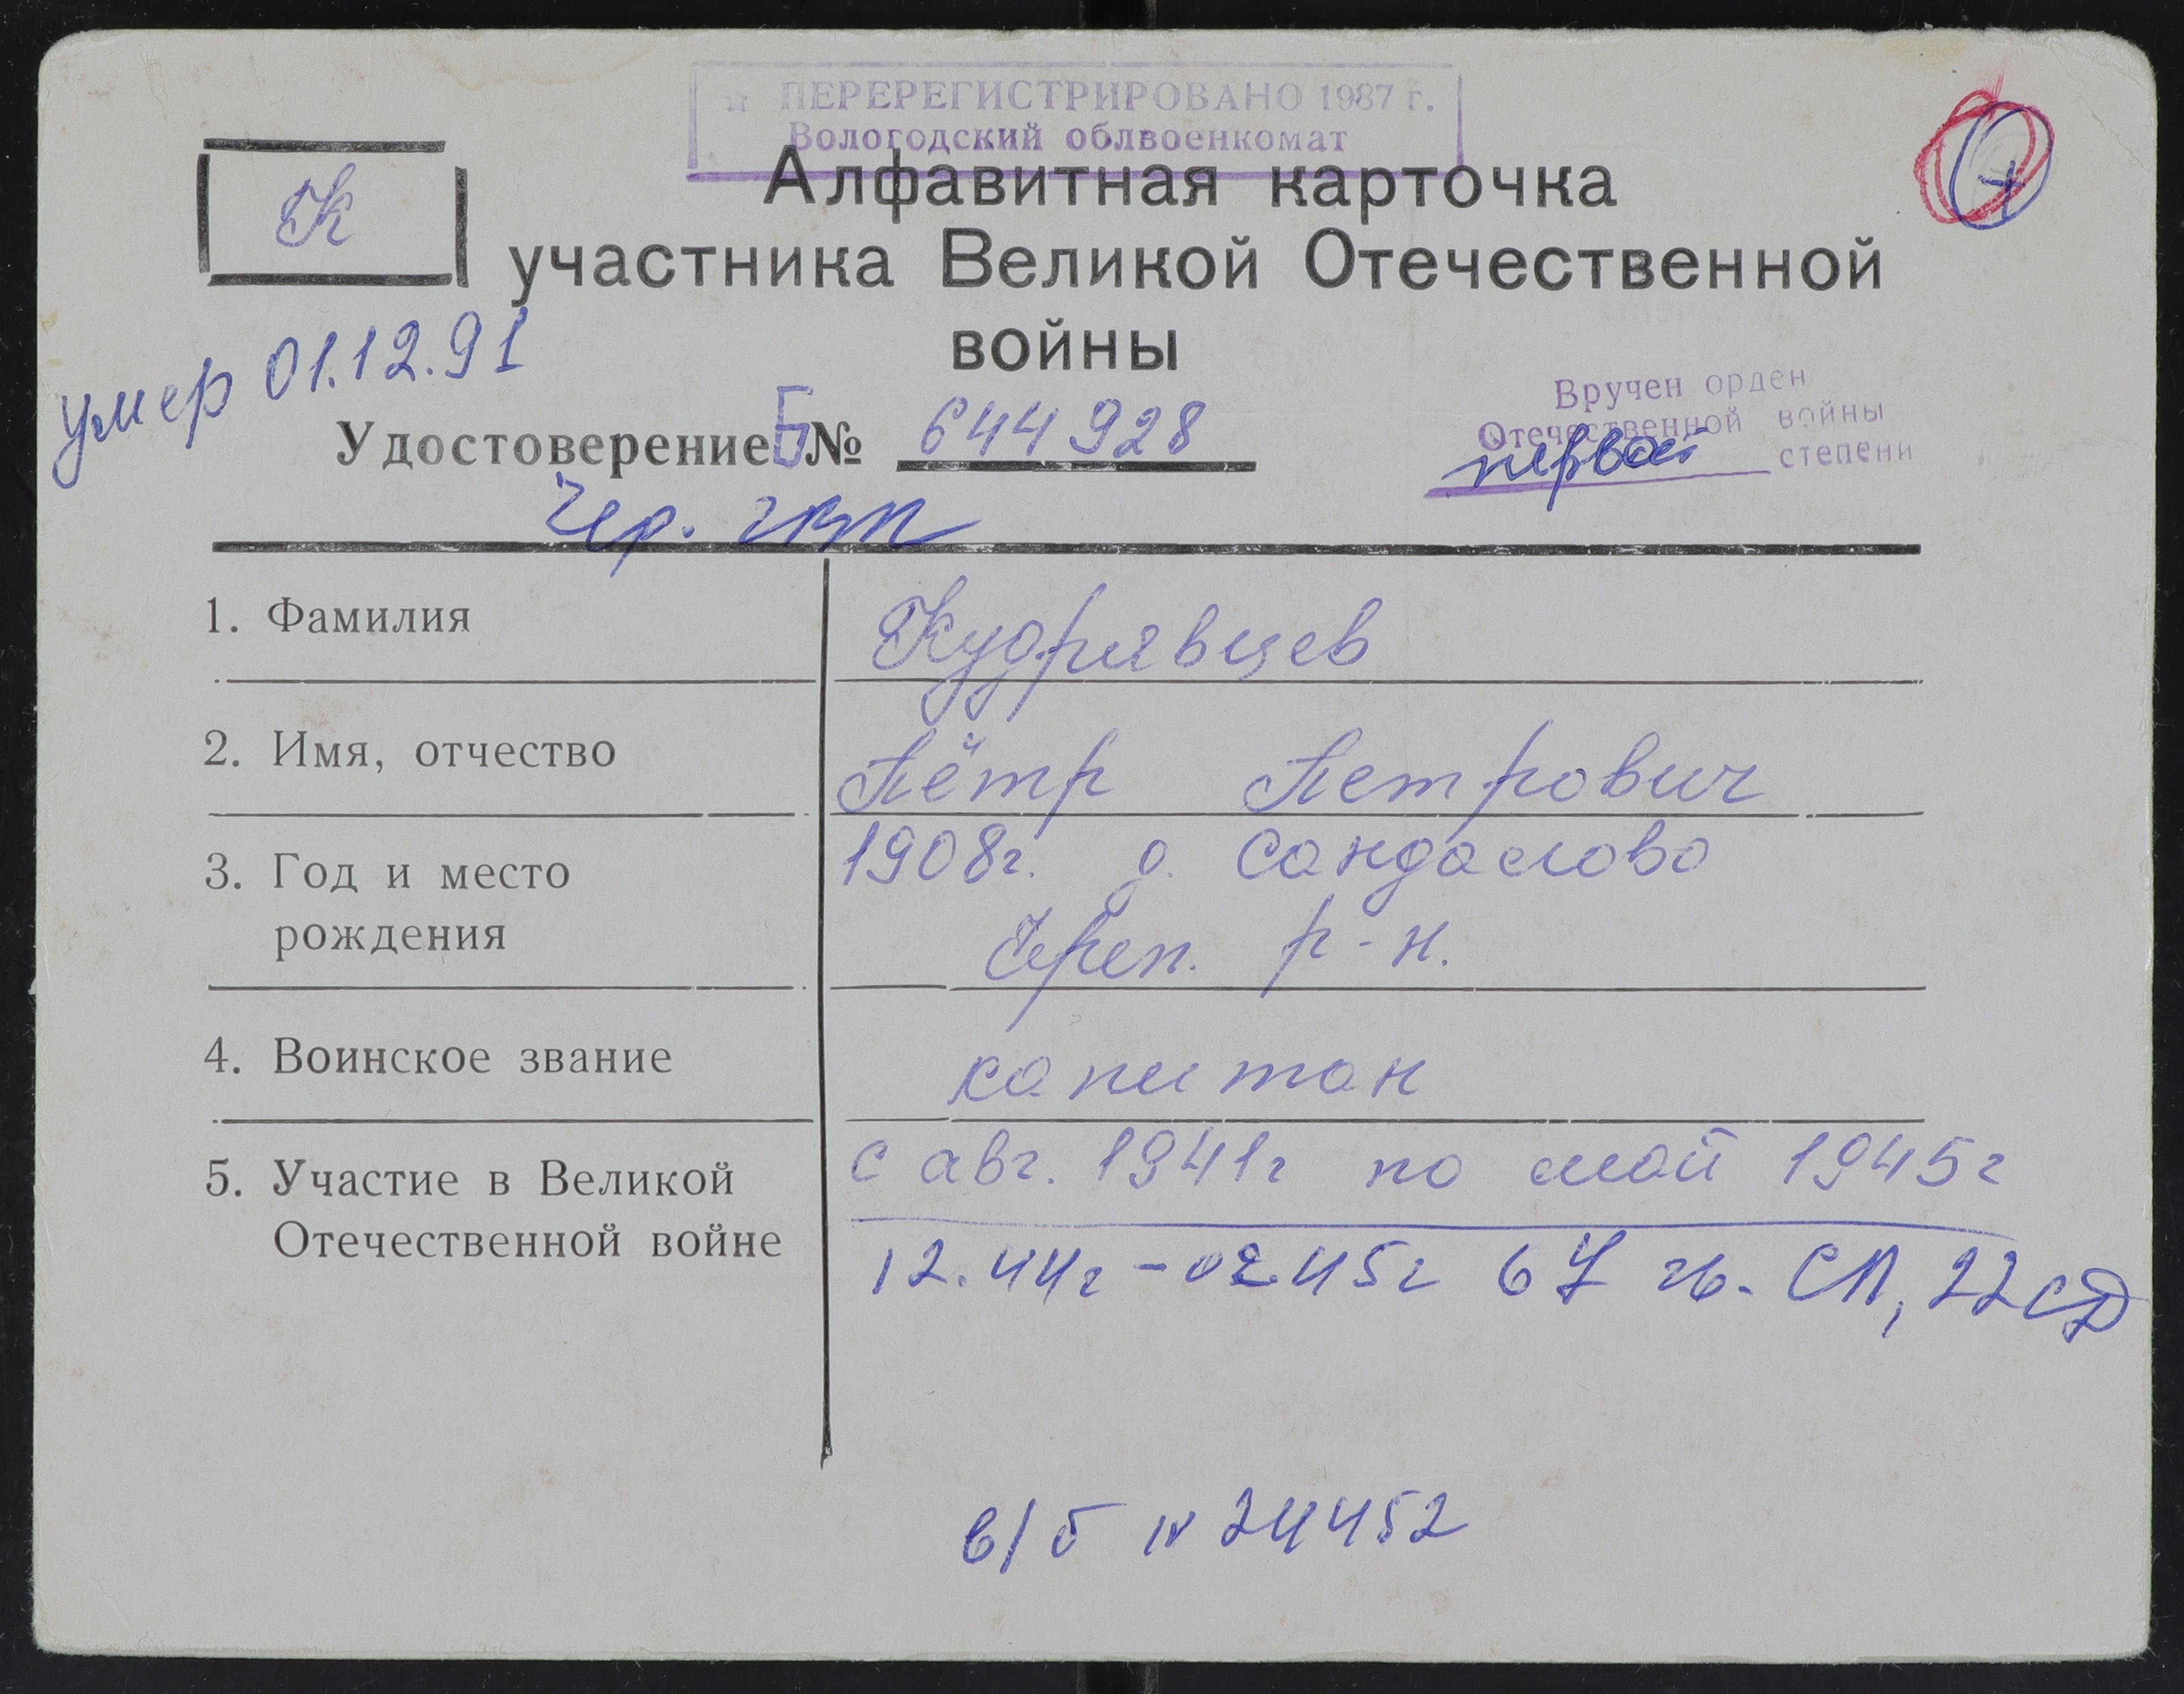 ☆ ПЕРЕРЕГИСТРИРОВАНО 1987 г.
Вологодский облвоенкомат
К
Алфавитная карточка
участника Великой Отечественной
войны
умер 01.12.91
Удостоверение Б № 644928
Вручен орден
Отечественной войны
первой степени
Чер.
1. Фамилия
Кудрявцев
2. Имя, отчество
Пётр Петрович
3. Год и место
рождения
1908г. д. Сандалово
Череп. р-н.
4. Воинское звание
капитан
5. Участие в Великой
Отечественной войне
с авг. 1941г по май 1945г
12.44г - 02.45г 67 гв. СП, 22 СД
в/б № 24452